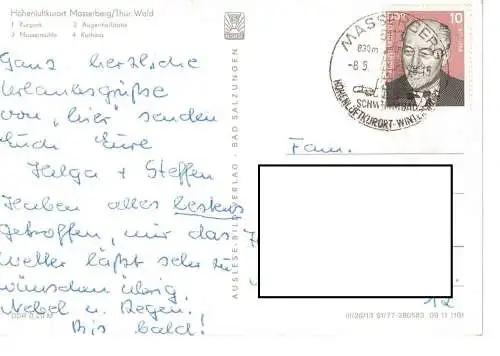 Höhenluftkurort Masserberg/Thür. Wald
1 Kurpark 2 Augenheilstätte
3 Massermühle 4 Kurhaus
Ganz herzliche
Urlaubsgrüße
von „hier" senden
Euch Eure
Helga + Steffen
Haben alles bestens
getroffen, nur das
Wetter läßt sehr zu
wünschen übrig.
Nebel u. Regen.
Bis bald!
AUSLESE-BILD-VERLAG - BAD SALZUNGEN
MASSERBERG
830m
-8.5
SCHWIMMBAD
HÖHENLUFTKURORT-WINTER
DDR
10
Fam.
12
III/26/13 S1/77-280583 09 11 (10)